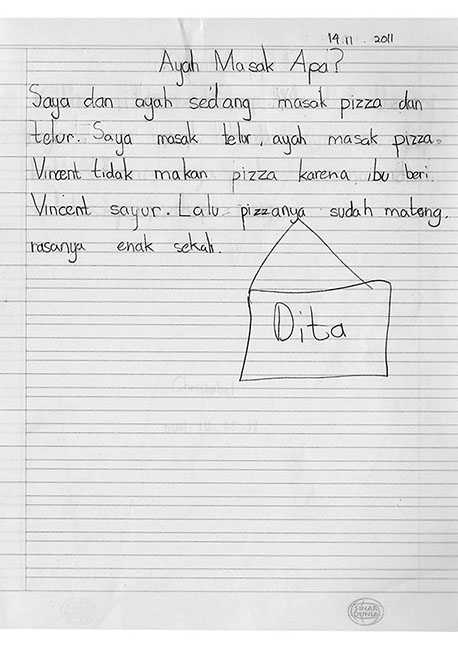 14.11.2011
Ayah Masak Apa?
Saya dan ayah sedang masak pizza dan
telur. Saya masak telur, ayah masak pizza.
Vincent tidak makan pizza karena ibu beri
Vincent sayur. Lalu pizzanya sudah matang.
rasanya enak sekali.
Dita
SINAR
DUNIA